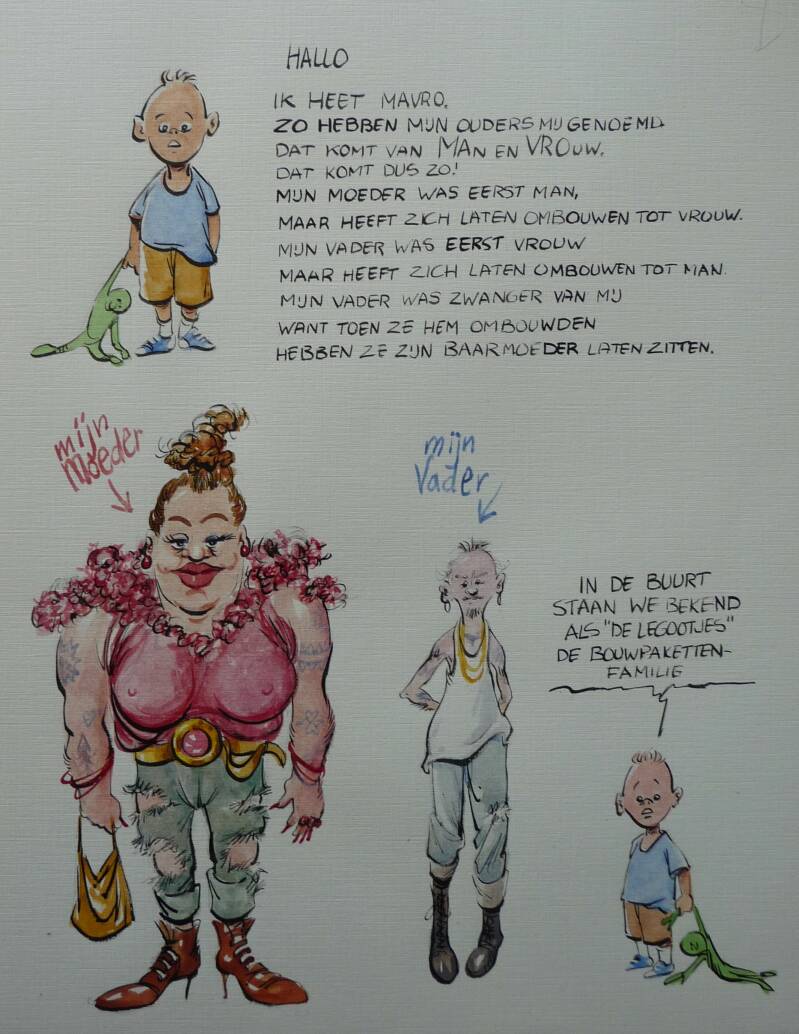 HALLO
IK HEET MAVRO.
ZO HEBBEN MIJN OUDERS MIJ GENOEMD.
DAT KOMT VAN MAN EN VROUW.
DAT KOMT DUS ZO!
MIJN MOEDER WAS EERST MAN,
MAAR HEEFT ZICH LATEN OMBOUWEN TOT VROUW.
MIJN VADER WAS EERST VROUW
MAAR HEEFT ZICH LATEN OMBOUWEN TOT MAN.
MIJN VADER WAS ZWANGER VAN MIJ
WANT TOEN ZE HEM OMBOUWDEN
HEBBEN ZE ZIJN BAARMOEDER LATEN ZITTEN.
mijn
Moeder
mijn
Vader
IN DE BUURT
STAAN WE BEKEND
ALS "DE LEGOOTJES"
DE BOUWPAKETTEN-
FAMILIE